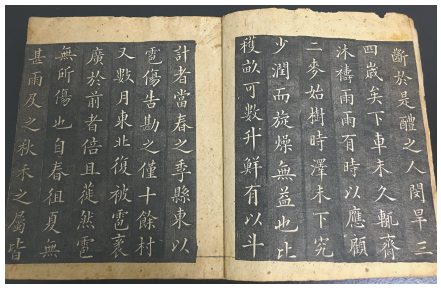 斷於是醴之人閔旱三
四歲矣下車未久輒齋
沐禱雨雨有時以應願
二麥始樹時澤未下究
少潤而旋燥無益也比
穫畝可數升鮮有以斗
計者當春之季縣東以
雹傷告勘之僅十餘村
又數月東北復被雹袤
廣於前者倍且蓰然雹
無所傷也自春徂夏無
甚雨及之秋禾之屬皆